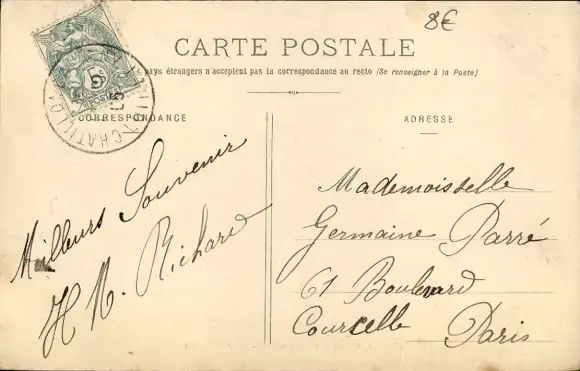 8€
CARTE POSTALE
pays étrangers n'acceptent pas la correspondance au recto (Se renseigner à la Poste)
CORRESPONDANCE
ADRESSE
Meilleurs Souvenir
H M. Richard
Mademoiselle
Germaine Parré
61 Boulevard
Courcelle Paris
5c
POSTES
CHATILLON